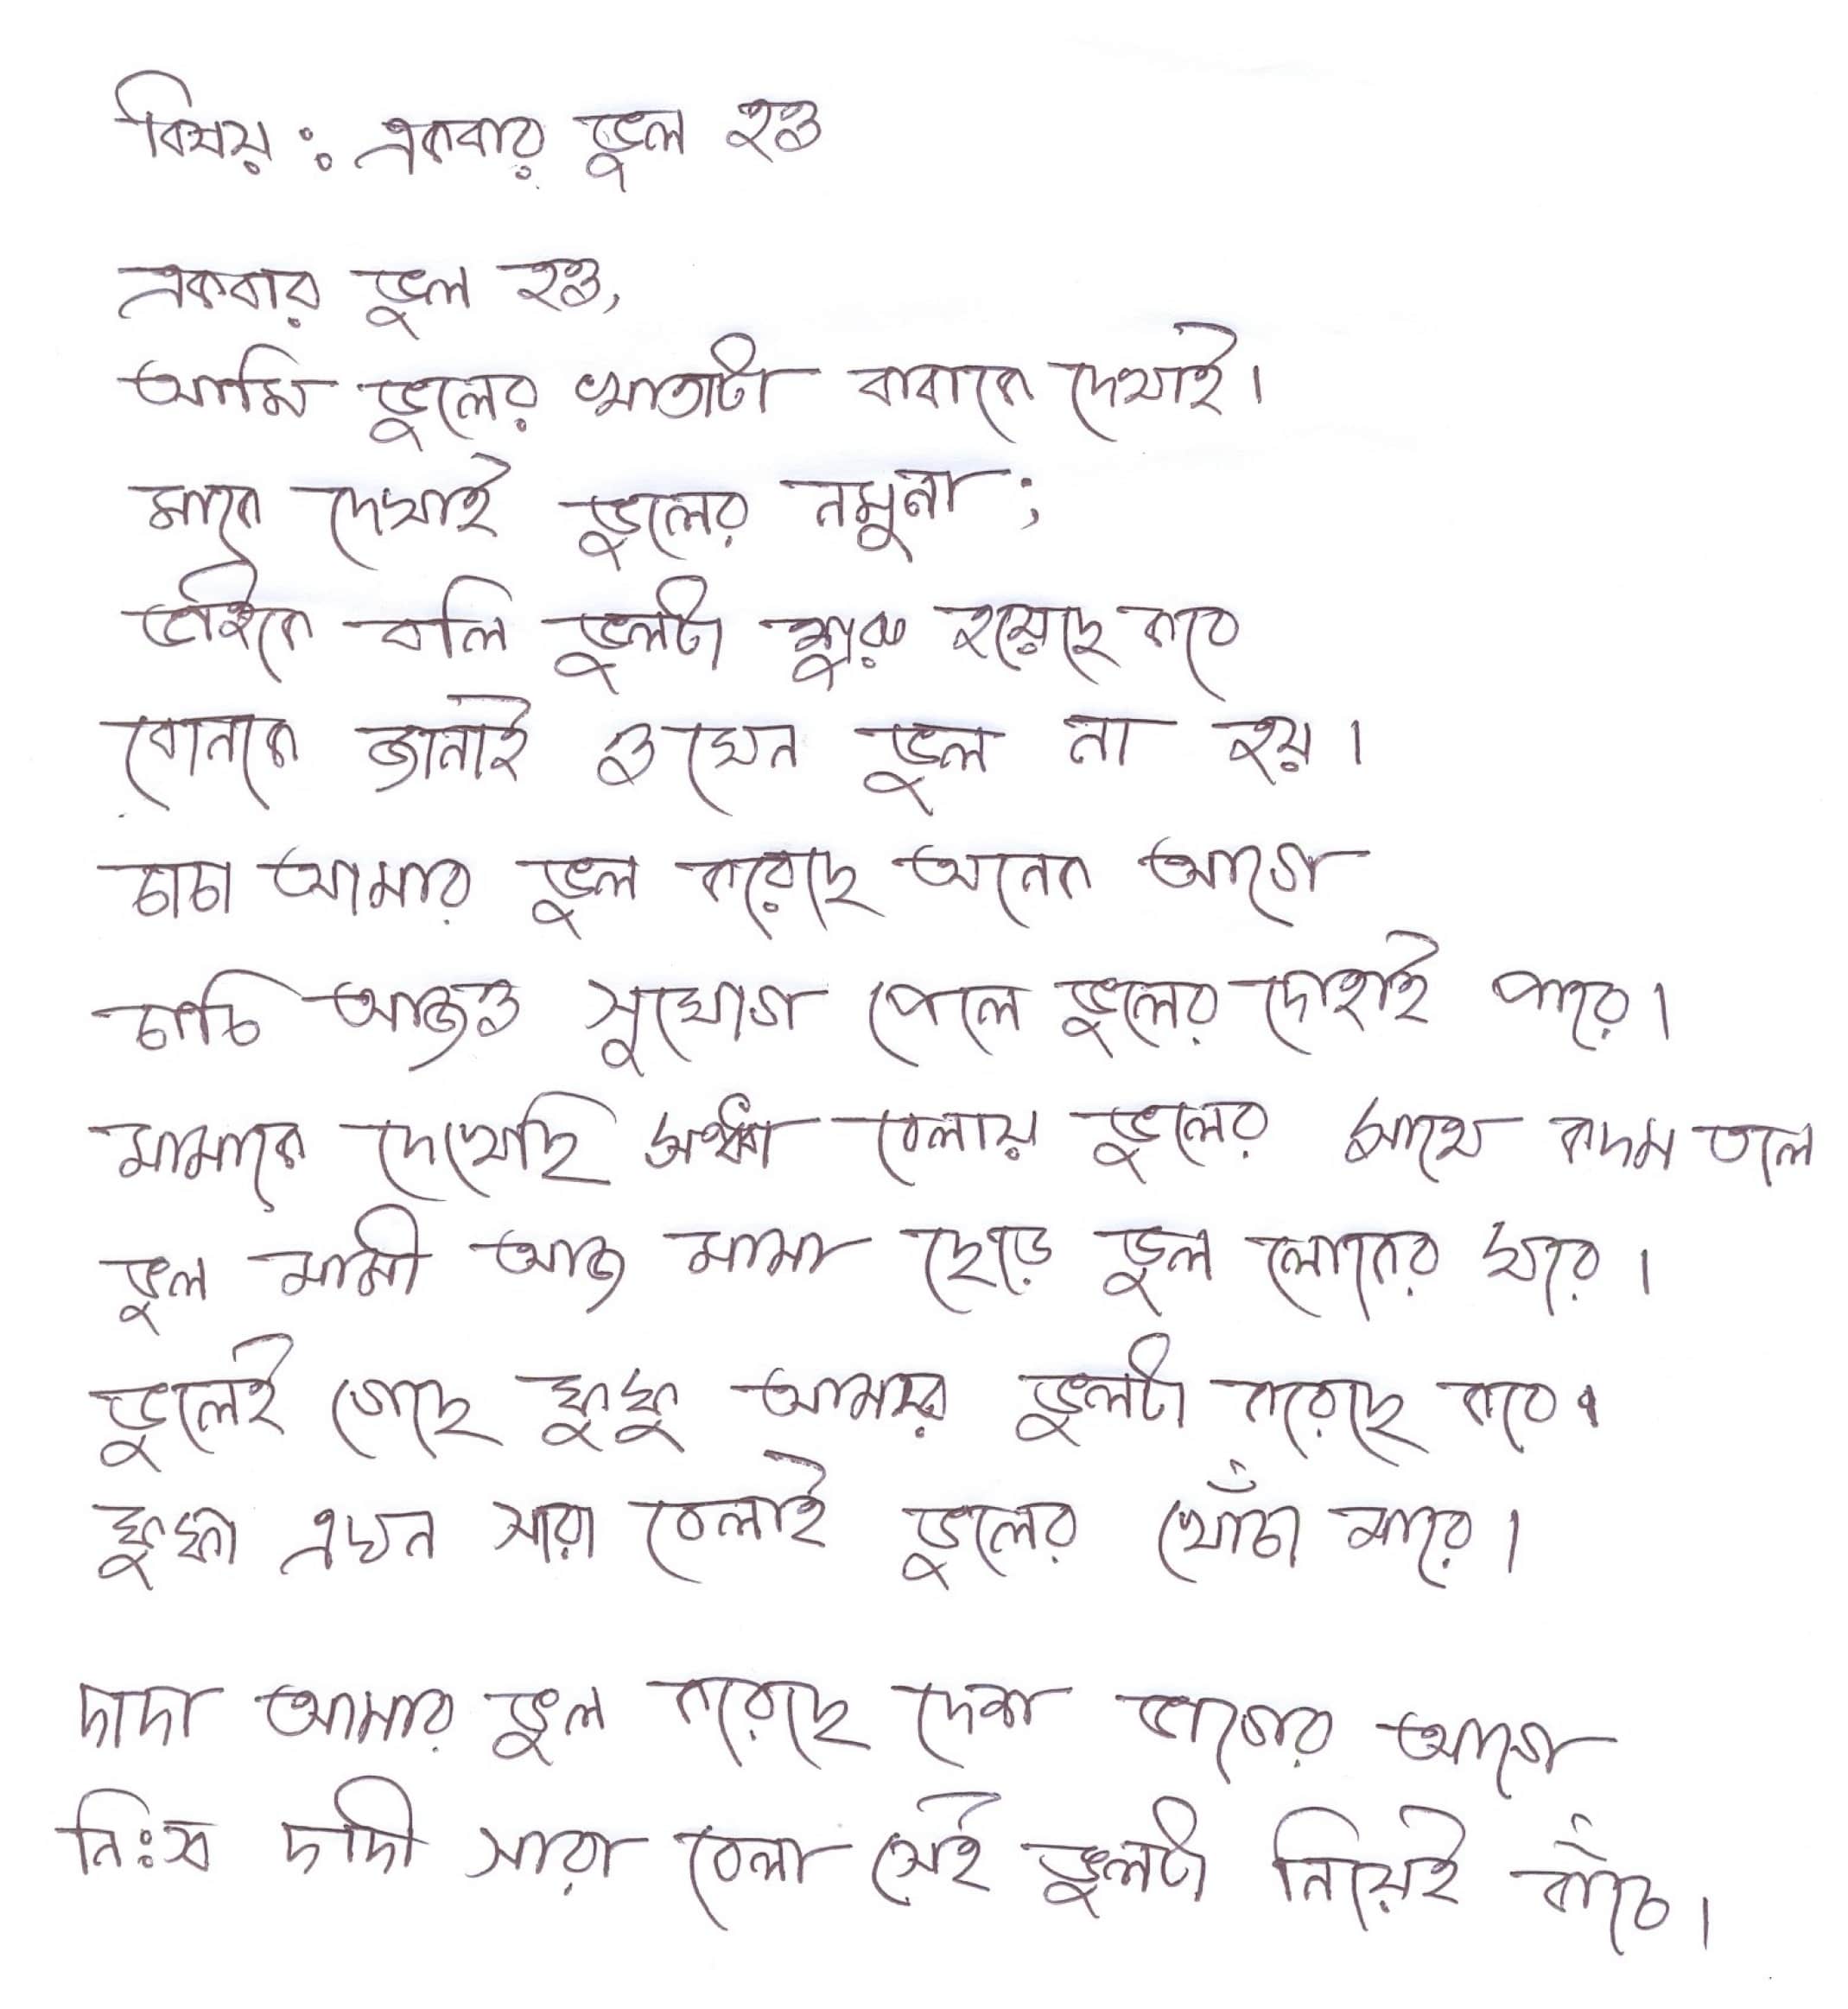 বিষয় : একবার ভুল হও
একবার ভুল হও,
আমি ভুলের খাতাটা বাবাকে দেখাই।
মাকে দেখাই ভুলের নমুনা ;
ভাইকে বলি ভুলটা শুরু হয়েছে কবে
বোনকে জানাই ও যেন ভুল না হয়।
চাচা আমার ভুল করেছে অনেক আগে
চাচি আজও সুযোগ পেলে ভুলের দোহাই পারে।
মামাকে দেখেছি সন্ধ্যা বেলায় ভুলের সাথে কদম তলে
ভুল মামী আজ মামা ছেড়ে ভুল লোকের ঘরে।
ভুলেই গেছে ফুফু আমার ভুলটা করেছে কবে।
ফুফা এখন সারা বেলাই ভুলের খোঁচা মারে।
দাদা আমার ভুল করেছে দেশ ভাগের আগে
নিঃস্ব দাদী সারা বেলা সেই ভুলটা নিয়েই বাঁচে।